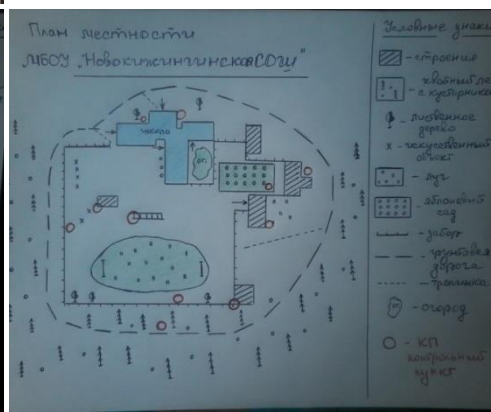 План местности
МБОУ „Новокижингинская СОШ"
школа
ог.
Условные знаки
- строения
- хвойный ле
с кустарнико
- лиственное
дерево
х - искусственный
объект
- луг
- яблоневый
сад
- забор
- грунтовая
дорога
- тропинка
- огород
- КП
контрольный
пункт